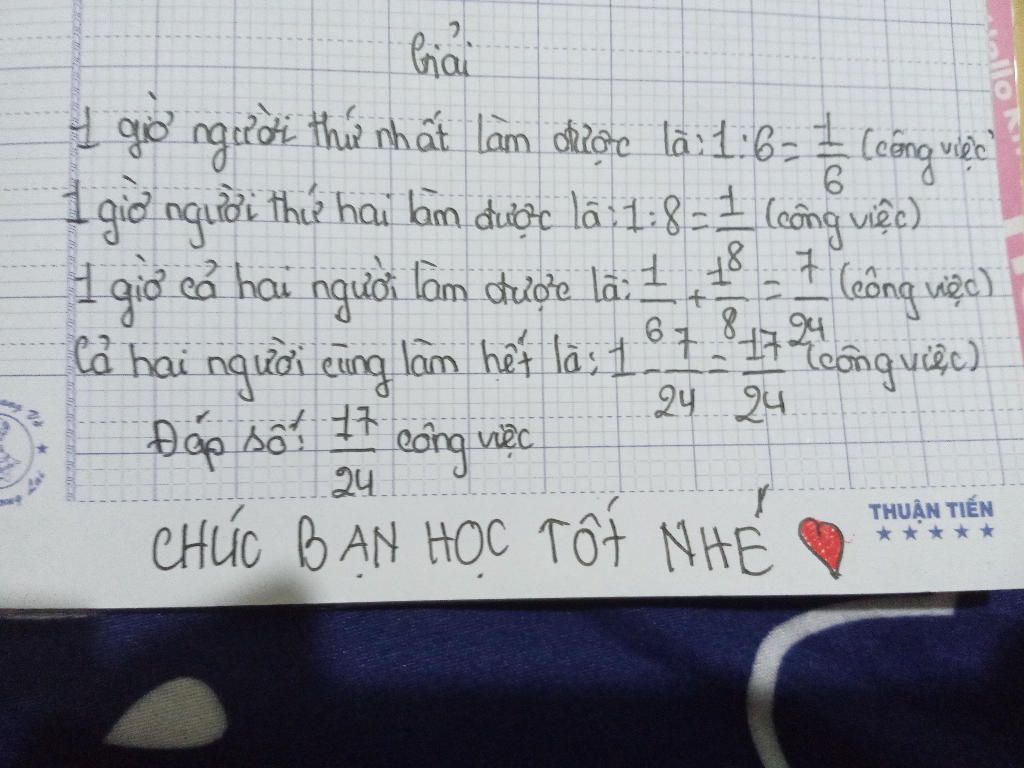 Giải
1 giờ người thứ nhất làm được là: 1:6 = 1/6 (công việc
1 giờ người thứ hai làm được là: 1:8 = 1/8 (công việc)
1 giờ cả hai người làm được là: 1/6 + 1/8 = 7/24 (công việc)
Cả hai người cùng làm hết là: 1 - 7/24 = 17/24 (công việc)
Đáp số: 17/24 công việc
CHÚC BẠN HỌC TỐT NHÉ
THUẬN TIẾN